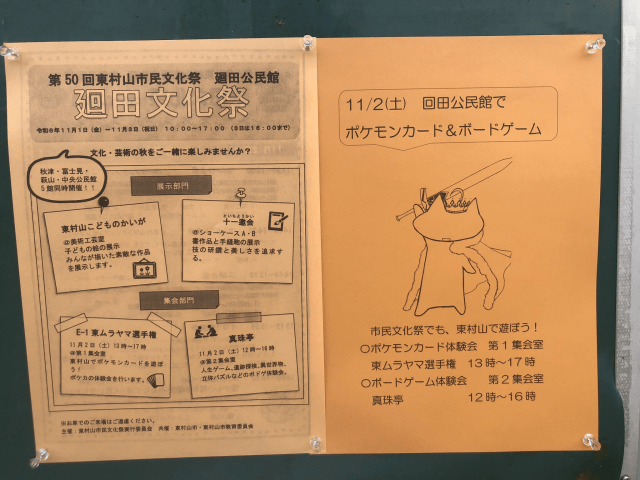 第50回東村山市民文化祭　廻田公民館
廻田文化祭
令和6年11月1日（金）～11月3日（祝日）　10:00～17:00　（3日は16:00まで）
文化・芸術の秋をご一緒に楽しみませんか？
秋津・富士見・
萩山・中央公民館
5館同時開催！！
展示部門
東村山こどものかいが
@美術工芸室
子どもの絵の展示
みんなが描いた素敵な作品
を展示します。
といちようかい
十一邀会
@ショーケースA・B
書作品と手縫鞄の展示
技の研鑽と美しさを追求す
る。
集会部門
E-1 東ムラヤマ選手権
11月2日（土）13時～17時
@第1集会室
東村山でポケモンカードを遊ぼ
う！
ポケカの体験会を行います。
真珠亭
11月2日（土）12時～16時
@第2集会室
人生ゲーム、遺跡探検、異世界物、
立体パズルなどのボドゲ体験会。
※お車でのご来場はご遠慮ください。
主催：東村山市民文化祭実行委員会　共催：東村山市・東村山市教育委員会
11/2(土)　回田公民館で
ポケモンカード＆ボードゲーム
市民文化祭でも、東村山で遊ぼう！
○ポケモンカード体験会　第1集会室
東ムラヤマ選手権　13時～17時
○ボードゲーム体験会　第2集会室
真珠亭　12時～16時